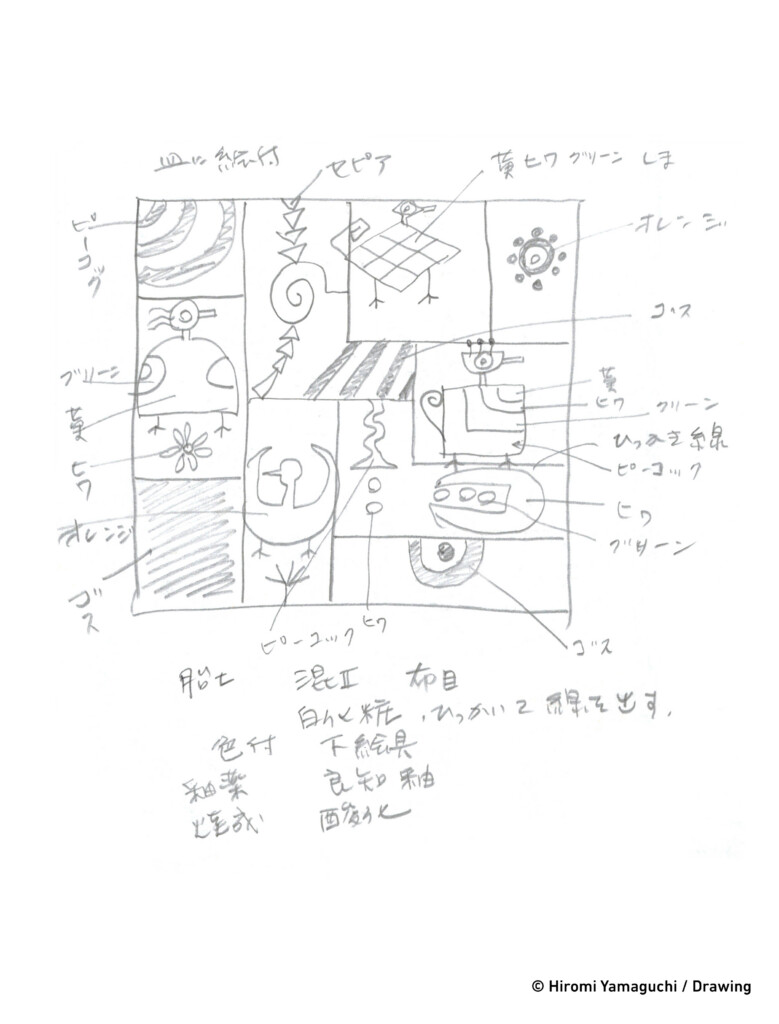 皿に絵付
セピア
黄ヒワグリーン しま
ピーコック
オレンジ
ゴス
グリーン
黄
黄
ヒワ
グリーン
ヒワ
ひっかき線
ピーコック
ヒワ
オレンジ
グリーン
ゴス
ピーコック
ヒワ
ゴス
胎土 混Ⅱ 布目
白化粧、ひっかいて線を出す。
色付 下絵具
釉薬 良知釉
焼成 酸化
© Hiromi Yamaguchi / Drawing